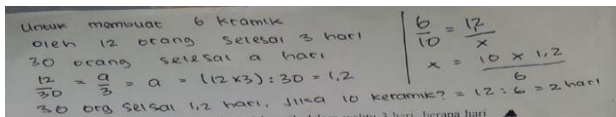 Untuk membuat 6 kramik
oleh 12 orang selesai 3 hari
30 orang selesai a hari
12/30 = a/3 = a = (12 x 3) : 30 = 1,2
30 org selsai 1,2 hari. Jika 10 keramik? = 12 : 6 = 2 hari
6/10 = 12/x
x = 10 x 1,2 / 6
3 hari, berapa hari